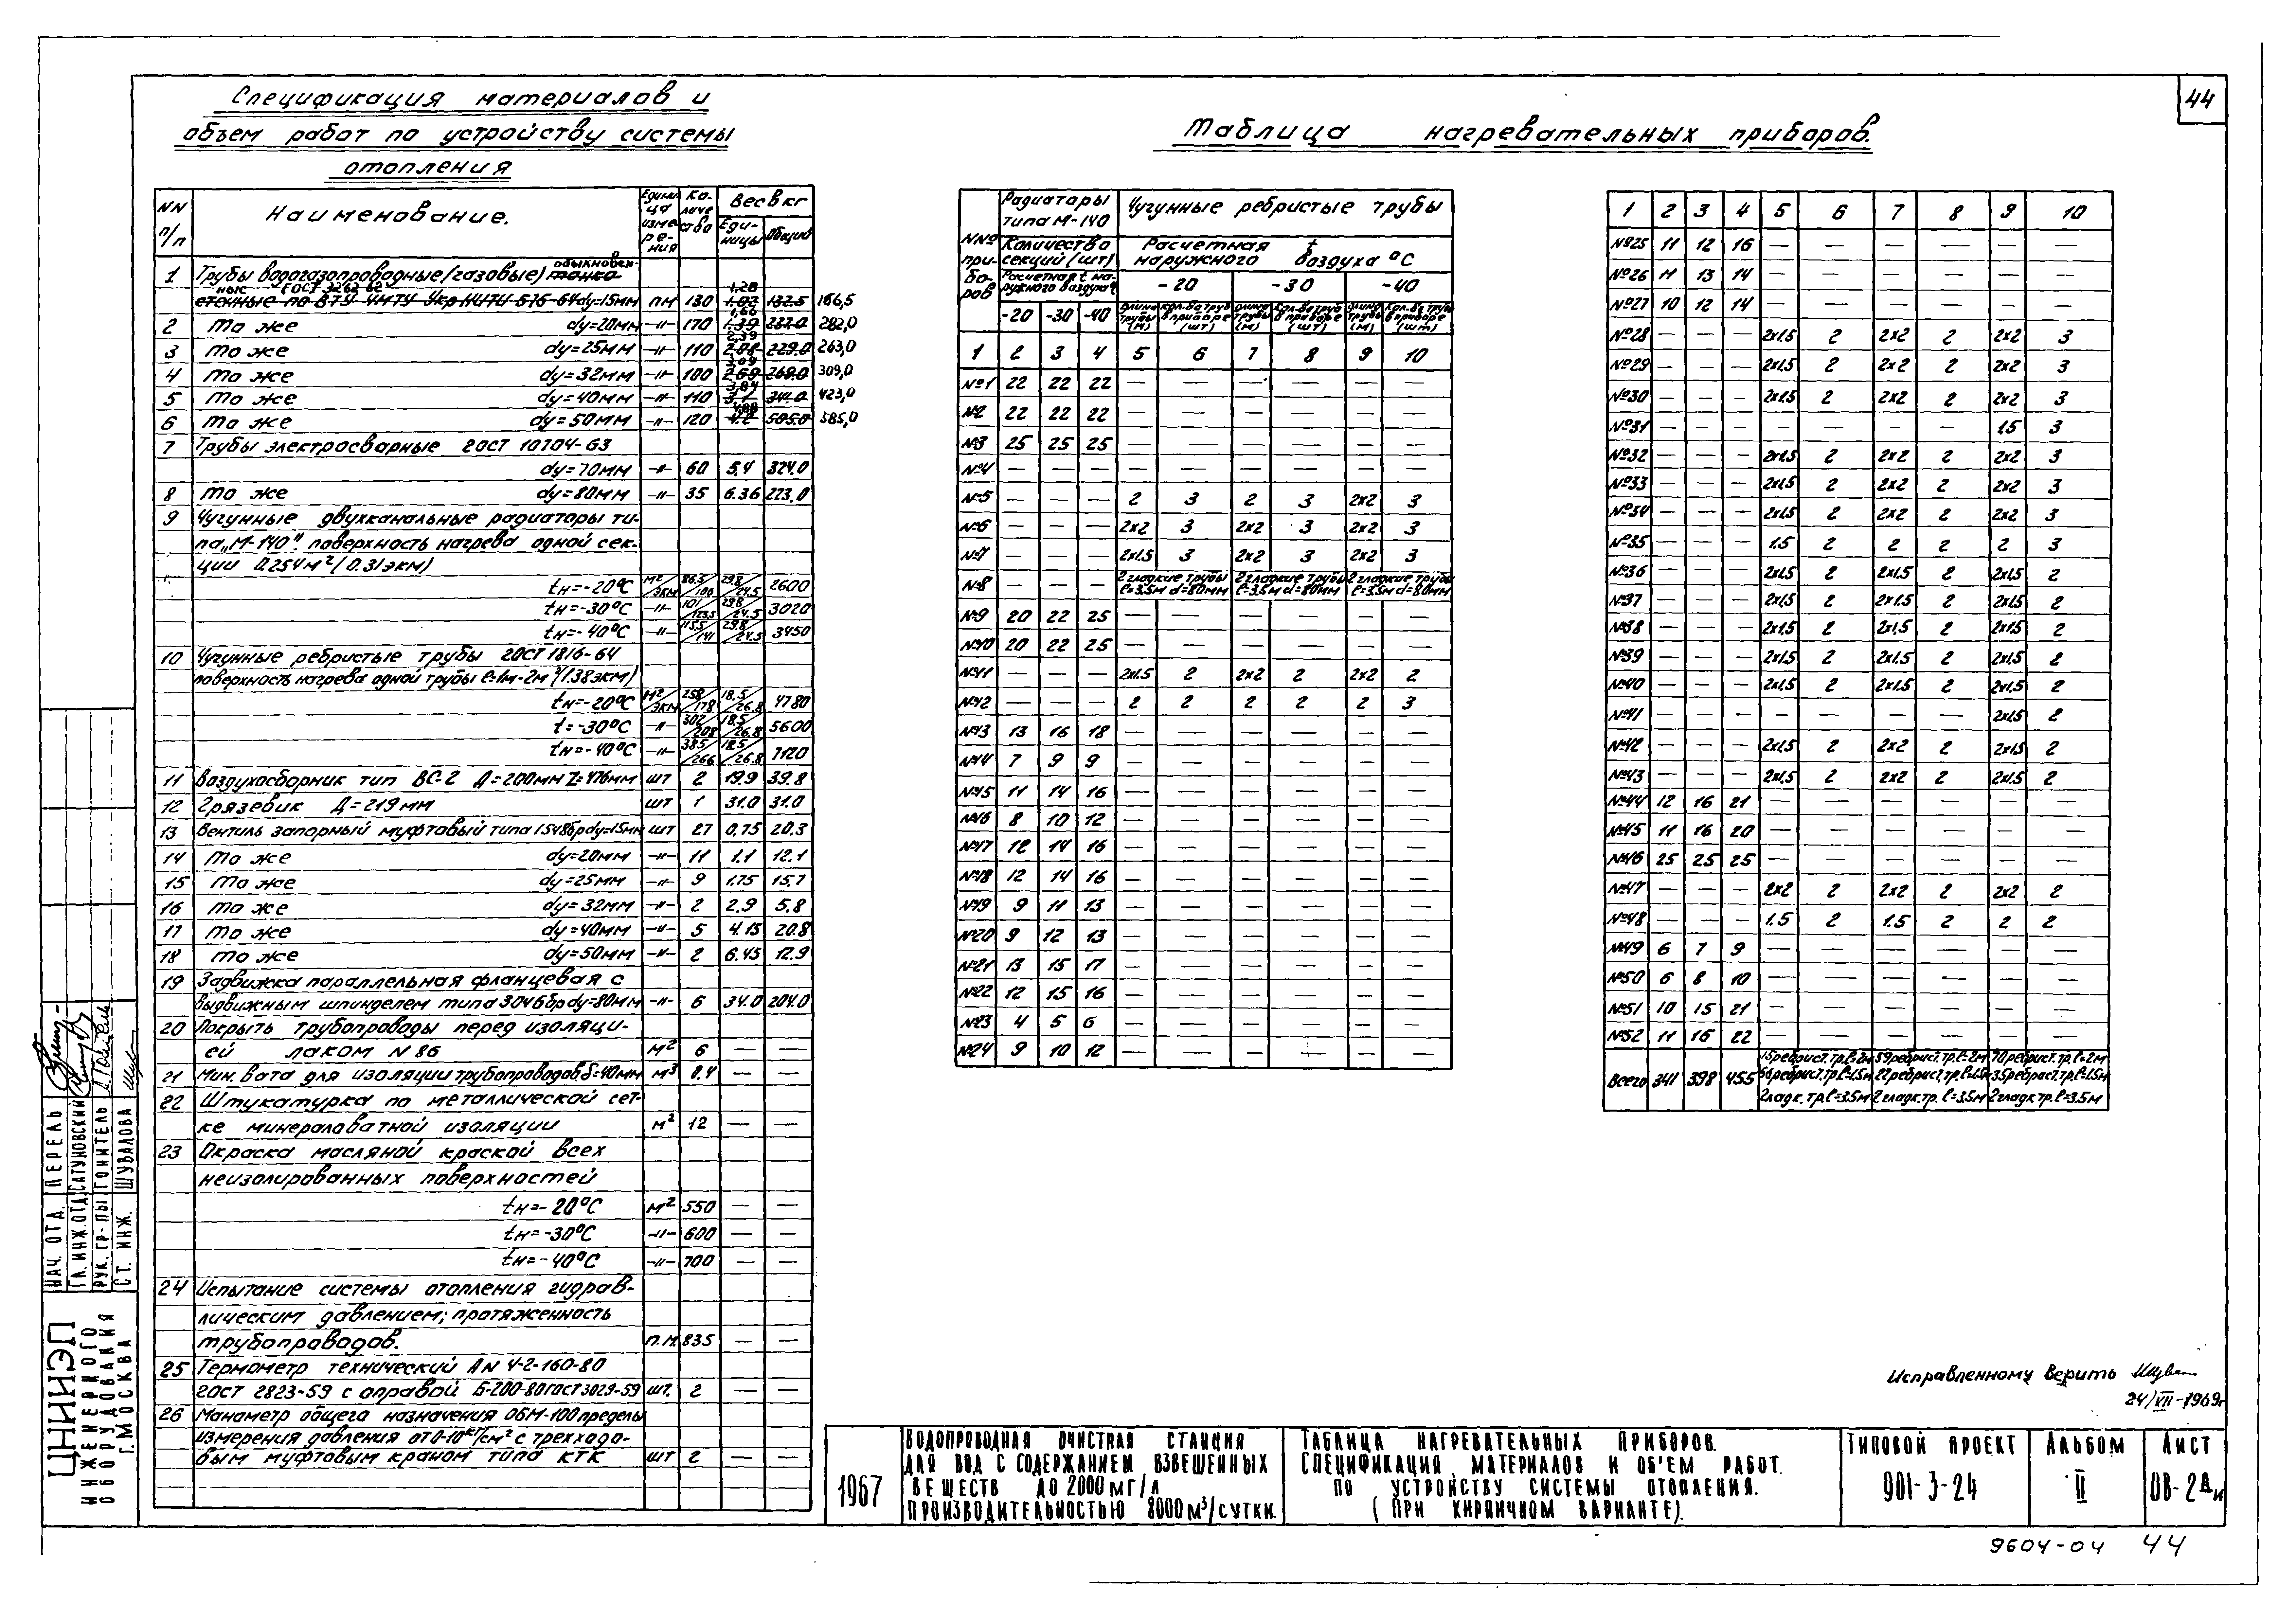 44
Спецификация материалов и
объем работ по устройству системы
отопления
NN п/п | Наименование. | Единица измерения | Количество | Вес в кг
Единицы | Общий
обыкновен-
1 Трубы водогазопроводные (газовые) тонко-
ные ГОСТ 3262-62 1,28
стенные по ВТУ ЧМТУ Укр НИТИ 576-64 dу=15мм пм 130 1.02 132.5 166,5
1,66
2 То же dу=20мм -"- 170 1.39 237.0 282,0
2,39
3 То же dу=25мм -"- 110 2.08 229.0 263,0
3,09
4 То же dу=32мм -"- 100 2.69 269.0 309,0
3,84
5 То же dу=40мм -"- 110 3.1 341.0 423,0
4,88
6 То же dу=50мм -"- 120 4.2 505.0 585,0
7 Трубы электросварные ГОСТ 10704-63
dу=70мм -"- 60 5,4 324.0
8 То же dу=80мм -"- 35 6.36 223.0
9 Чугунные двухканальные радиаторы ти-
па „М-140". поверхность нагрева одной сек-
ции 0.254м²/0.31экм)
tн=-20°С м²/экм 86.5/106 29.8/24.5 2600
tн=-30°С -"- 101/123.5 29.8/24.5 3020
tн=-40°С -"- 115.5/141 29.8/24.5 3450
10 Чугунные ребристые трубы ГОСТ 1816-64
поверхность нагрева одной трубы ℓ=1м-2м²/1.38экм)
tн=-20°С м²/экм 258/178 18.5/26.8 4780
t=-30°С -"- 302/208 18.5/26.8 5600
tн=-40°С -"- 385/266 18.5/26.8 7120
11 Воздухосборник тип ВС-2 Д=200мм Z=476мм шт 2 19.9 39.8
12 Грязевик Д=219мм шт 1 31.0 31.0
13 Вентиль запорный муфтовый типа 15ч8бр dу=15мм шт 27 0,75 20.3
14 То же dу=20мм -"- 11 1.1 12.1
15 То же dу=25мм -"- 9 1.75 15,7
16 То же dу=32мм -"- 2 2.9 5.8
17 То же dу=40мм -"- 5 4.15 20.8
18 То же dу=50мм -"- 2 6.45 12.9
19 Задвижка параллельная фланцевая с
выдвижным шпинделем типа 30ч6бр dу=80мм -"- 6 34.0 204.0
20 Покрыть трубопроводы перед изоляци-
ей лаком N 86 м² 6 — —
21 Мин. вата для изоляции трубопроводов δ=40мм м³ 0.4 — —
22 Штукатурка по металлической сет-
ке минераловатной изоляции м² 12 — —
23 Окраска масляной краской всех
неизолированных поверхностей
tн=-20°С м² 550 — —
tн=-30°С -"- 600 — —
tн=-40°С -"- 700 — —
24 Испытание системы отопления гидрав-
лическим давлением; протяженность
трубопроводов. п.м. 835 — —
25 Термометр технический АN 4-2-160-80
ГОСТ 2823-59 с оправой Б-200-80 ГОСТ 3029-59 шт. 2 — —
26 Манометр общего назначения ОБМ-100 пределы
измерения давления от 0-10кг/см² с трехходо-
вым муфтовым краном типа КТК шт 2 — —
Таблица нагревательных приборов.
NNº приборов | Радиаторы типа М-140 | Чугунные ребристые трубы
Количество секций (шт) | Расчетная t наружного воздуха °С
Расчетная t наружного воздуха | -20 | -30 | -40
-20 | -30 | -40 | Длина трубы (м) | Кол-во труб в приборе (шт) | Длина трубы (м) | Кол-во труб в приборе (шт) | Длина трубы (м) | Кол-во труб в приборе (шт)
1 2 3 4 5 6 7 8 9 10
№1 22 22 22 — — — — — —
№2 22 22 22 — — — — — —
№3 25 25 25 — — — — — —
№4 — — — — — — — — —
№5 — — — 2 3 2 3 2х2 3
№6 — — — 2х2 3 2х2 3 2х2 3
№7 — — — 2х1.5 3 2х2 3 2х2 3
№8 — — — 2 гладкие трубы ℓ=3.5м d=80мм 2 гладкие трубы ℓ=3.5м d=80мм 2 гладкие трубы ℓ=3.5м d=80мм
№9 20 22 25 — — — — — —
№10 20 22 25 — — — — — —
№11 — — — 2х1.5 2 2х2 2 2х2 2
№12 — — — 2 2 2 2 2 3
№13 13 16 18 — — — — — —
№14 7 9 9 — — — — — —
№15 11 14 16 — — — — — —
№16 8 10 12 — — — — — —
№17 12 14 16 — — — — — —
№18 12 14 16 — — — — — —
№19 9 11 13 — — — — — —
№20 9 12 13 — — — — — —
№21 13 15 17 — — — — — —
№22 12 15 16 — — — — — —
№23 4 5 6 — — — — — —
№24 9 10 12 — — — — — —
1 2 3 4 5 6 7 8 9 10
№25 11 12 16 — — — — — —
№26 11 13 14 — — — — — —
№27 10 12 14 — — — — — —
№28 — — — 2х1.5 2 2х2 2 2х2 3
№29 — — — 2х1.5 2 2х2 2 2х2 3
№30 — — — 2х1.5 2 2х2 2 2х2 3
№31 — — — — — — — 1.5 3
№32 — — — 2х1.5 2 2х2 2 2х2 3
№33 — — — 2х1.5 2 2х2 2 2х2 3
№34 — — — 2х1.5 2 2х2 2 2х2 3
№35 — — — 1.5 2 2 2 2 3
№36 — — — 2х1.5 2 2х1.5 2 2х1.5 2
№37 — — — 2х1.5 2 2х1.5 2 2х1.5 2
№38 — — — 2х1.5 2 2х1,5 2 2х1.5 2
№39 — — — 2х1.5 2 2х1.5 2 2х1.5 2
№40 — — — 2х1.5 2 2х1.5 2 2х1.5 2
№41 — — — — — — — 2х1.5 2
№42 — — — 2х1.5 2 2х2 2 2х1.5 2
№43 — — — 2х1.5 2 2х2 2 2х1.5 2
№44 12 16 21 — — — — — —
№45 11 16 20 — — — — — —
№46 25 25 25 — — — — — —
№47 — — — 2х2 2 2х2 2 2х2 2
№48 — — — 1.5 2 1.5 2 2 2
№49 6 7 9 — — — — — —
№50 6 8 10 — — — — — —
№51 10 15 21 — — — — — —
№52 11 16 22 — — — — — —
15 ребрист. тр. ℓ=2м 59 ребрист. тр. ℓ=2м 70 ребрист. тр. ℓ=2м
Всего 341 398 455 66 ребрист. тр. ℓ=1.5м 22 ребрист. тр. ℓ=1.5м 35 ребрист. тр. ℓ=1.5м
2 гладк. тр. ℓ=3.5м 2 гладк. тр. ℓ=3.5м 2 гладк тр. ℓ=3.5м
Исправленному верить
24/VII-1969г
НАЧ. ОТД. ПЕРЕЛЬ
ГЛ. ИНЖ. ОТД. САТУНОВСКИЙ
РУК. ГР-ПЫ ГОНИТЕЛЬ
СТ. ИНЖ. ШУВАЛОВА
ЦНИИЭП
ИНЖЕНЕРНОГО
ОБОРУДОВАНИЯ
Г. МОСКВА
1967
ВОДОПРОВОДНАЯ ОЧИСТНАЯ СТАНЦИЯ
ДЛЯ ВОД С СОДЕРЖАНИЕМ ВЗВЕШЕННЫХ
ВЕЩЕСТВ ДО 2000 МГ/Л
ПРОИЗВОДИТЕЛЬНОСТЬЮ 8000 М³/СУТКИ.
ТАБЛИЦА НАГРЕВАТЕЛЬНЫХ ПРИБОРОВ.
СПЕЦИФИКАЦИЯ МАТЕРИАЛОВ И ОБ'ЕМ РАБОТ.
ПО УСТРОЙСТВУ СИСТЕМЫ ОТОПЛЕНИЯ.
(ПРИ КИРПИЧНОМ ВАРИАНТЕ).
ТИПОВОЙ ПРОЕКТ
901-3-24
АЛЬБОМ
II
ЛИСТ
ОВ-2Ди
9604-04 44